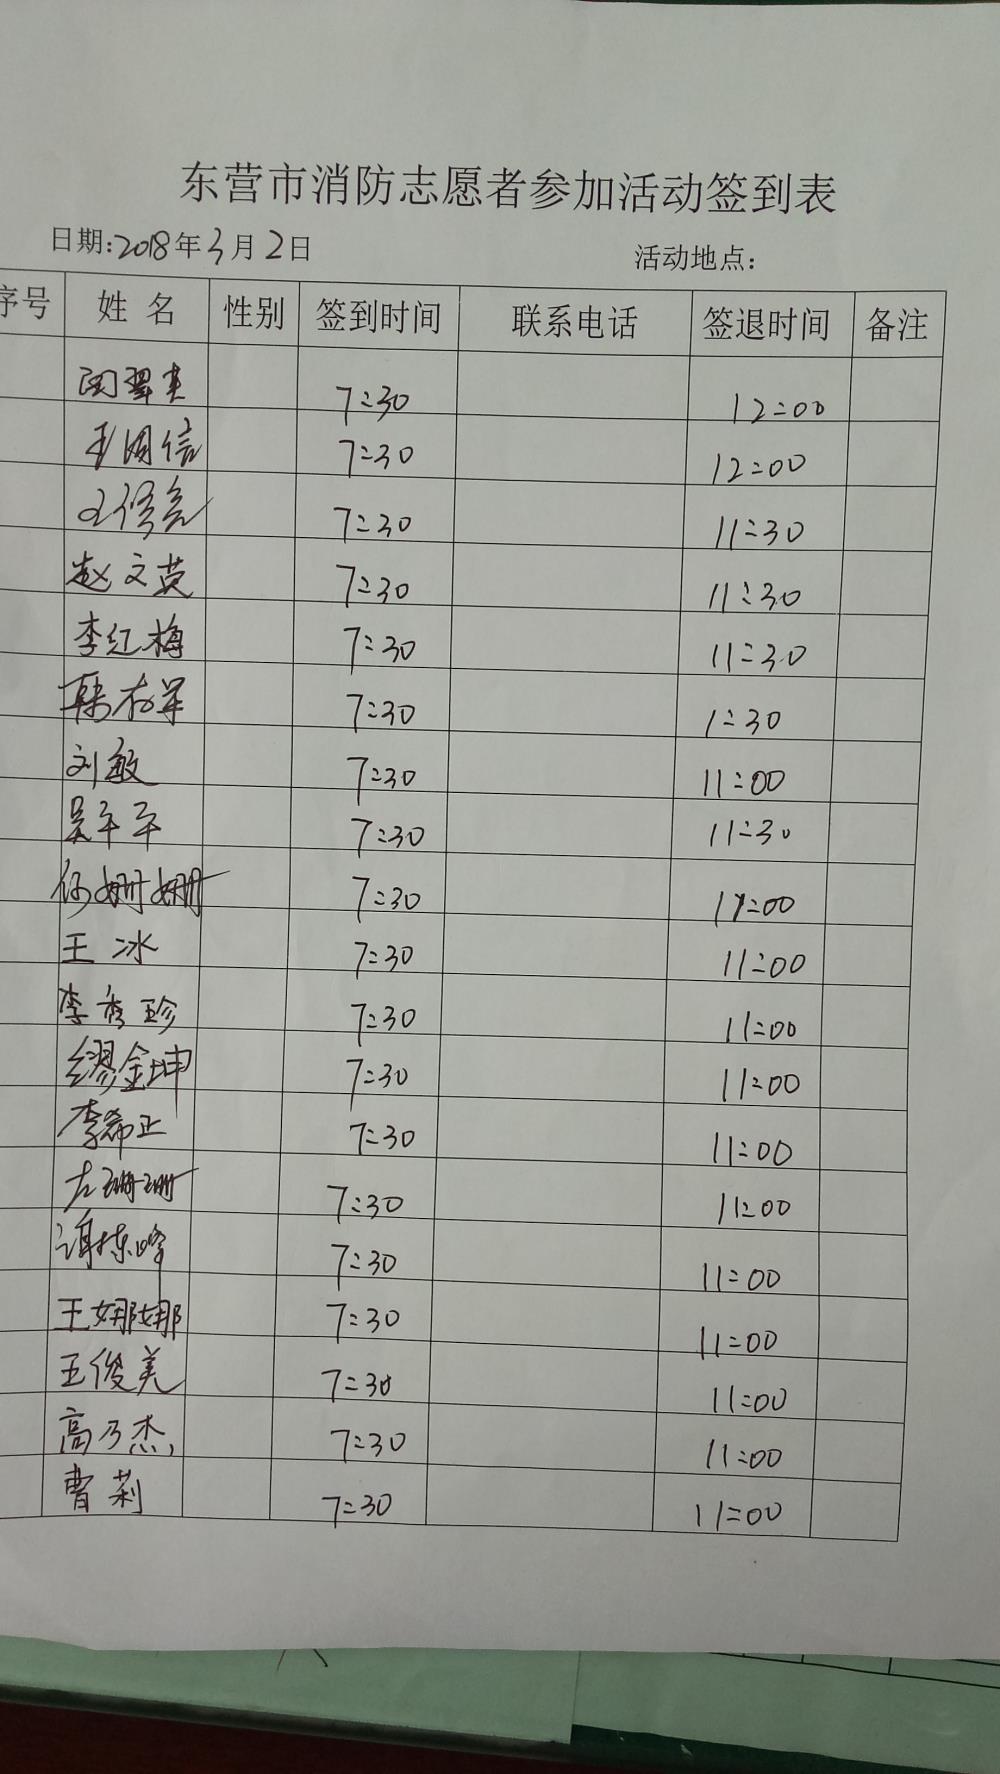 东营市消防志愿者参加活动签到表
日期:2018年3月2日 活动地点:
序号 姓名 性别 签到时间 联系电话 签退时间 备注
7:30 12:00
王国信 7:30 12:00
7:30 11:30
赵文英 7:30 11:30
李红梅 7:30 11:30
韩 7:30 1:30
刘敏 7:30 11:00
吴平平 7:30 11:30
何姗姗 7:30 11:00
王冰 7:30 11:00
李秀珍 7:30 11:00
缪金坤 7:30 11:00
李希正 7:30 11:00
左珊珊 7:30 11:00
谢栋峰 7:30 11:00
王娜娜 7:30 11:00
王俊美 7:30 11:00
高乃杰 7:30 11:00
曹莉 7:30 11:00